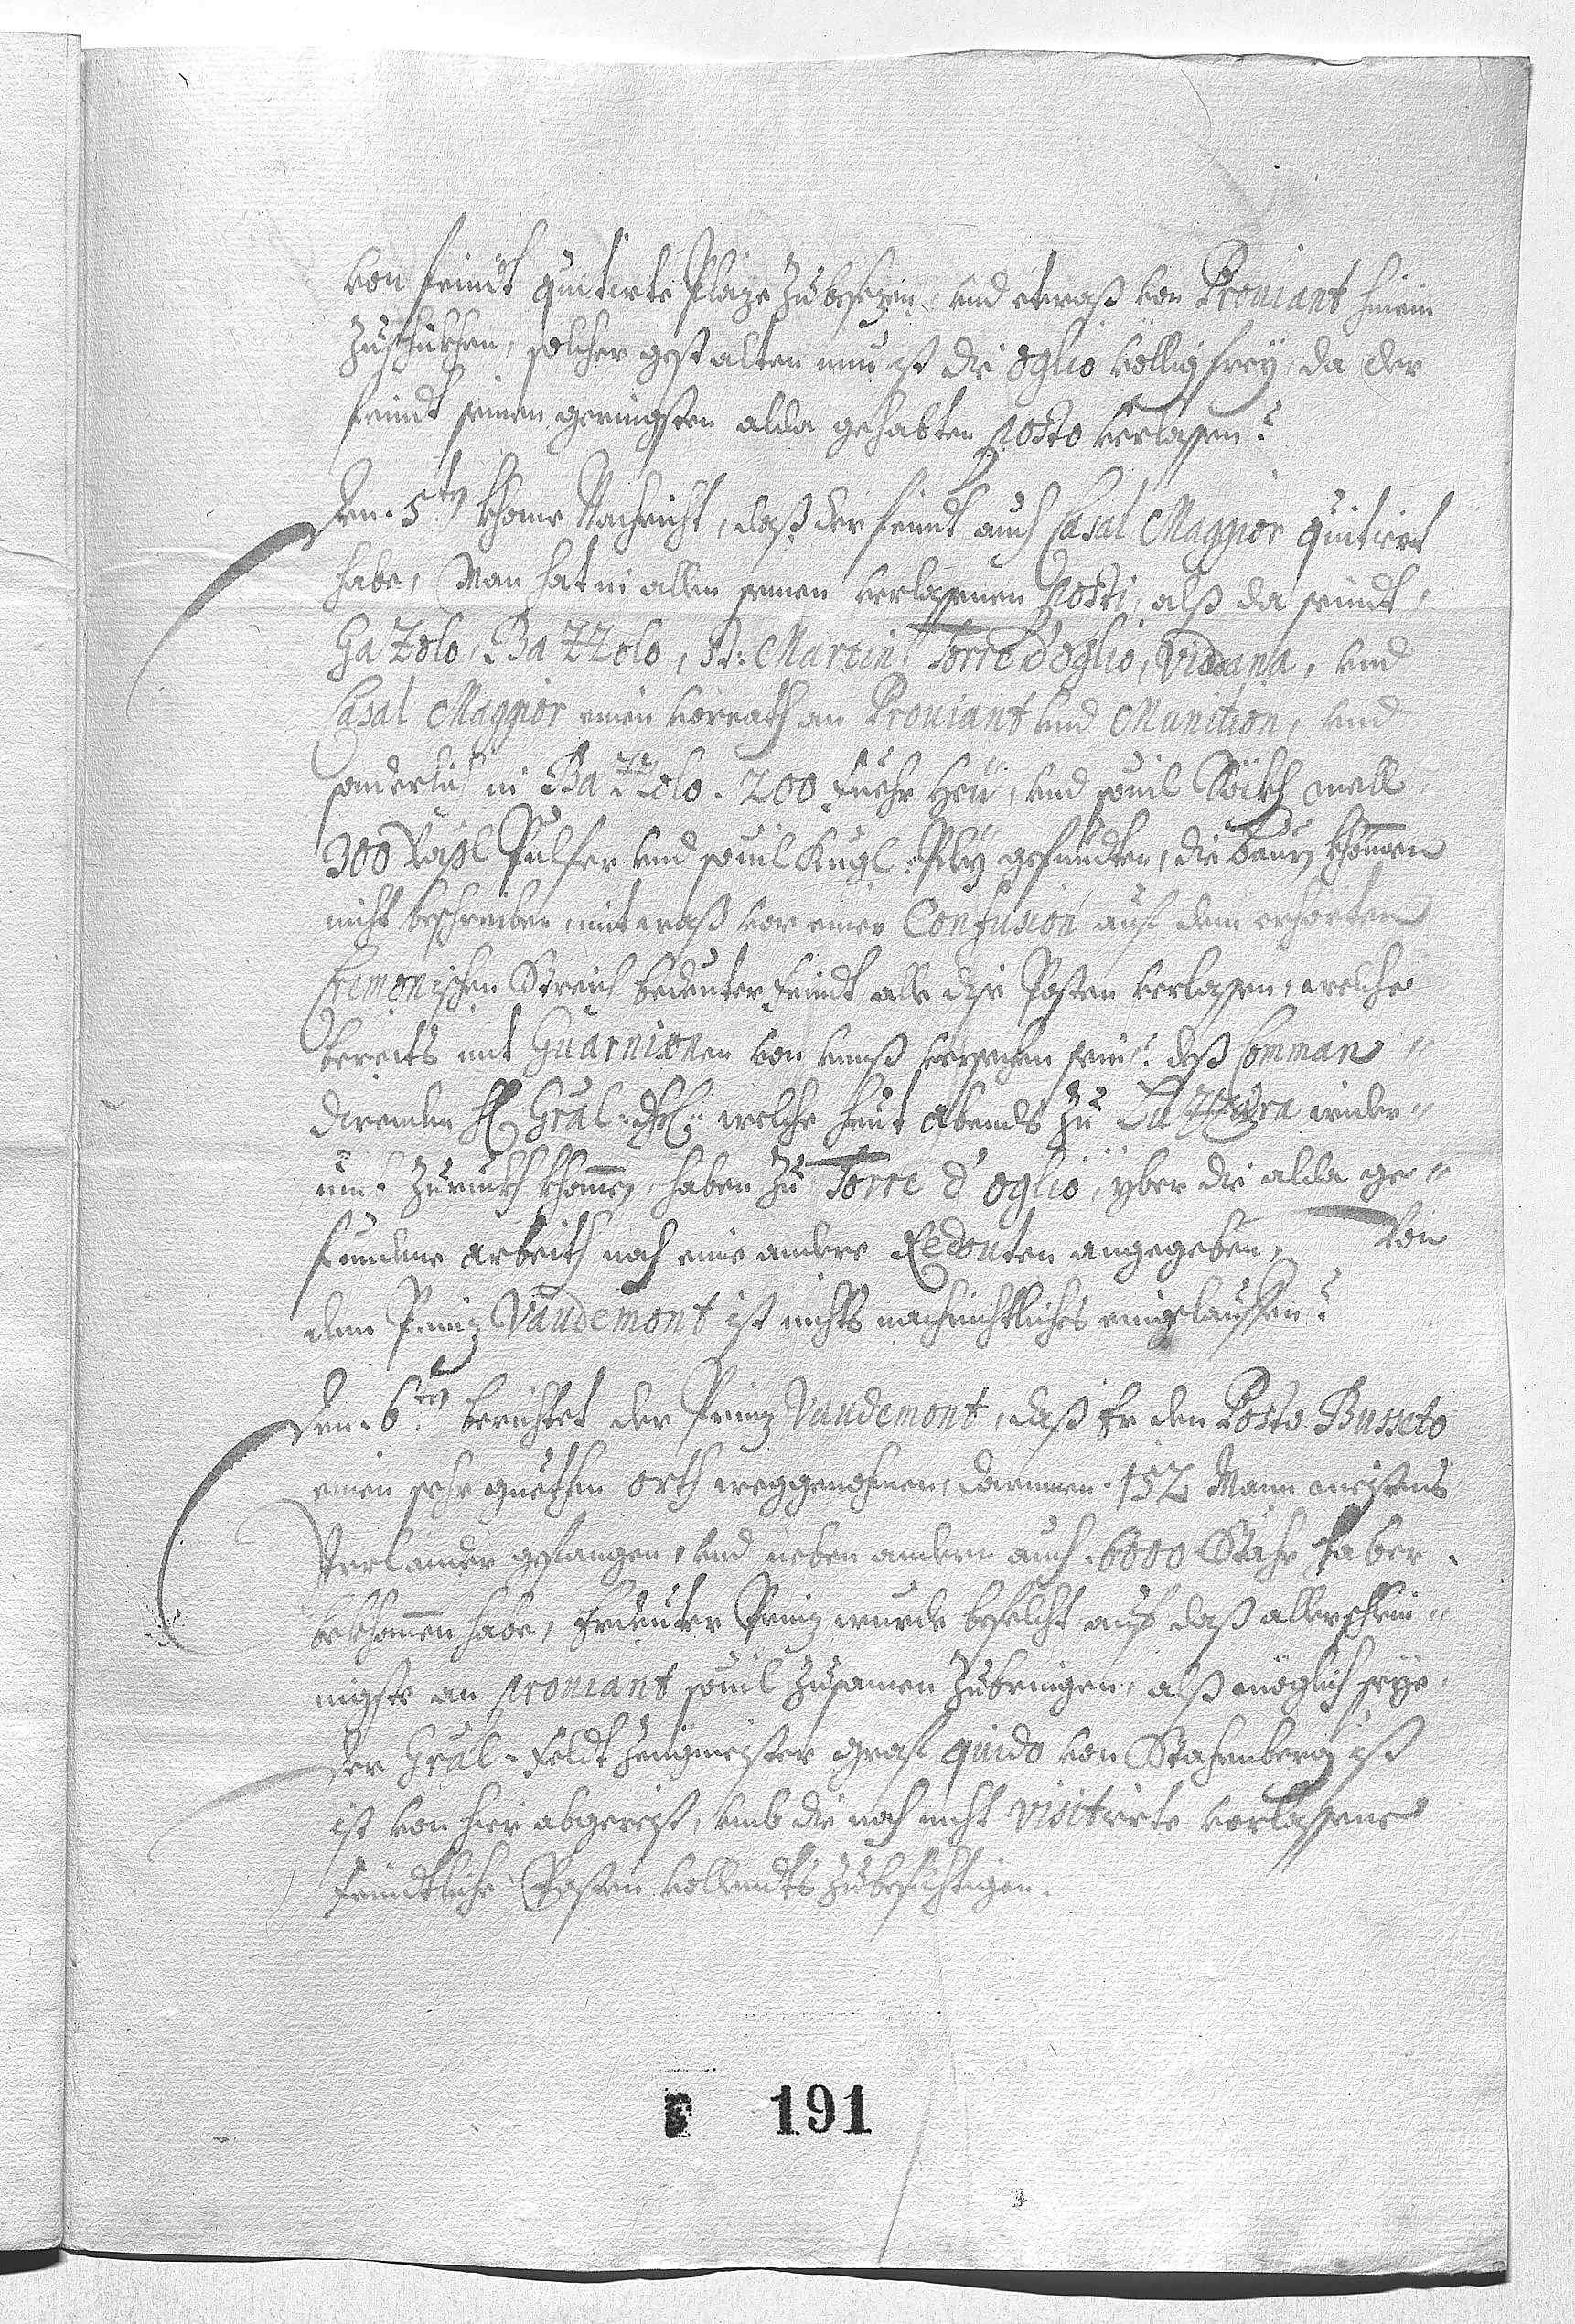 von feindt quitirte Pläze zubesezen, vnd etwaß von Prouiant hinein
zuschikhen, solcher gestalten nun ist die Oglio völlig frey, da der
feindt seinen geringsten alda gehabten Posto verlassen.
Den 5ten khome Nachricht, daß der feindt auch Casal Maggior quitirt
habe, Man hat in allen seinen verlassenen Posti, alß da seindt,
Gazolo, Bazzolo, St: Martin, Torre d'oglio, Viddana, vnd
Casal Maggior einen vorrath an Prouiant vnd Munition, vnd
sonderlich in Bazzolo. 200 fuehr Heü, vnd souil Säckh mell
300 Väßl Pulfer vnd souil Kugl: Pley gefundten, die baurn khönnen
nicht beschreiben, mit waß vor einer Confusion auf den erhörten
Cremonischen Streich bedeuter feindt alle dise Posten verlassen, welche
bereits mit Guarnisonen von vnnß versechen sein. deß Comman-
direnden H: Gral: welche heut abends zu Luzzara wider-
umb zuruckh khommen, haben zu Torre d'oglio, yber die alda ge-
fundene arbeith noch eine andere Redouten angegeben, Von
dem Prinz Vaudemont ist nichts nachrichtliches eingelauffen.
Den 6ten berichtet der Prinz Vaudemont, daß Er den Posto Busseto
einen sehr guethen orth weggenohmen, darinnen 152 Mann meistens
Irrländer gefangen, vnd neben andern auch 6000 Stähr haber
bekhommen habe, Erdeuter Prinz wurde befelcht auf daß allerschlein-
nigste an prouiant souil zusamen zubringen, alß möglich seye.
Der Gral-Feldt Zeügmeister Graf Guido von Stahrnberg ist
ist von hier abgereist, vmb die noch nicht visitirte verlassene
feindtliche Posten vollendts zubesichtigen.
191